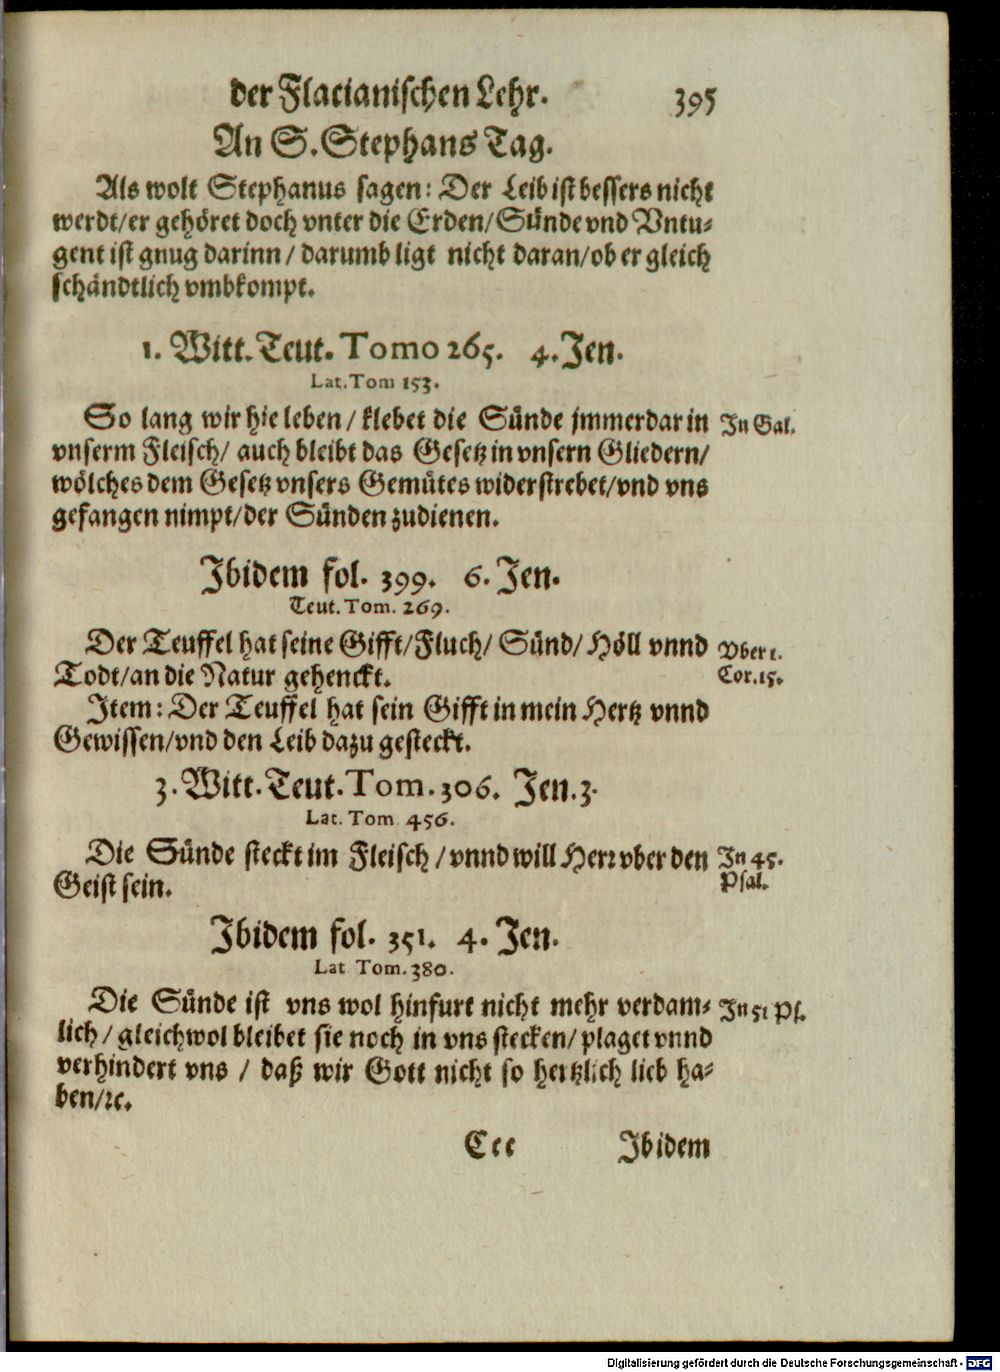 der Flacianischen Lehr. 395
An S. Stephans Tag.
Als wolt Stephanus sagen: Der Leib ist bessers nicht
werdt/er gehöret doch vnter die Erden/Sünde vnd Vntu-
gent ist gnug darinn / darumb ligt nicht daran/ob er gleich
schändtlich vmbkompt.
1. Witt. Teut. Tomo 265. 4. Jen.
Lat. Tom 153.
So lang wir hie leben / klebet die Sünde jmmerdar in In Gal.
vnserm Fleisch/ auch bleibt das Gesetz in vnsern Gliedern/
wölches dem Gesetz vnsers Gemütes widerstrebet/vnd vns
gefangen nimpt/der Sünden zudienen.
Ibidem fol. 399. 6. Jen.
Teut. Tom. 269.
Der Teuffel hat seine Gifft/Fluch/ Sünd/ Höll vnnd Vber 1.
Todt/an die Natur gehenckt. Cor. 15.
Item: Der Teuffel hat sein Gifft in mein Hertz vnnd
Gewissen/vnd den Leib dazu gesteckt.
3. Witt. Teut. Tom. 306. Jen. 3.
Lat. Tom 456.
Die Sünde steckt im Fleisch / vnnd will Herr vber den In 45.
Geist sein. Psal.
Ibidem fol. 351. 4. Jen.
Lat Tom. 380.
Die Sünde ist vns wol hinfurt nicht mehr verdam- In 51 Ps.
lich / gleichwol bleibet sie noch in vns stecken/ plaget vnnd
verhindert vns / daß wir Gott nicht so hertzlich lieb ha-
ben/ꝛc.
Ccc Ibidem
Digitalisierung gefördert durch die Deutsche Forschungsgemeinschaft - DFG